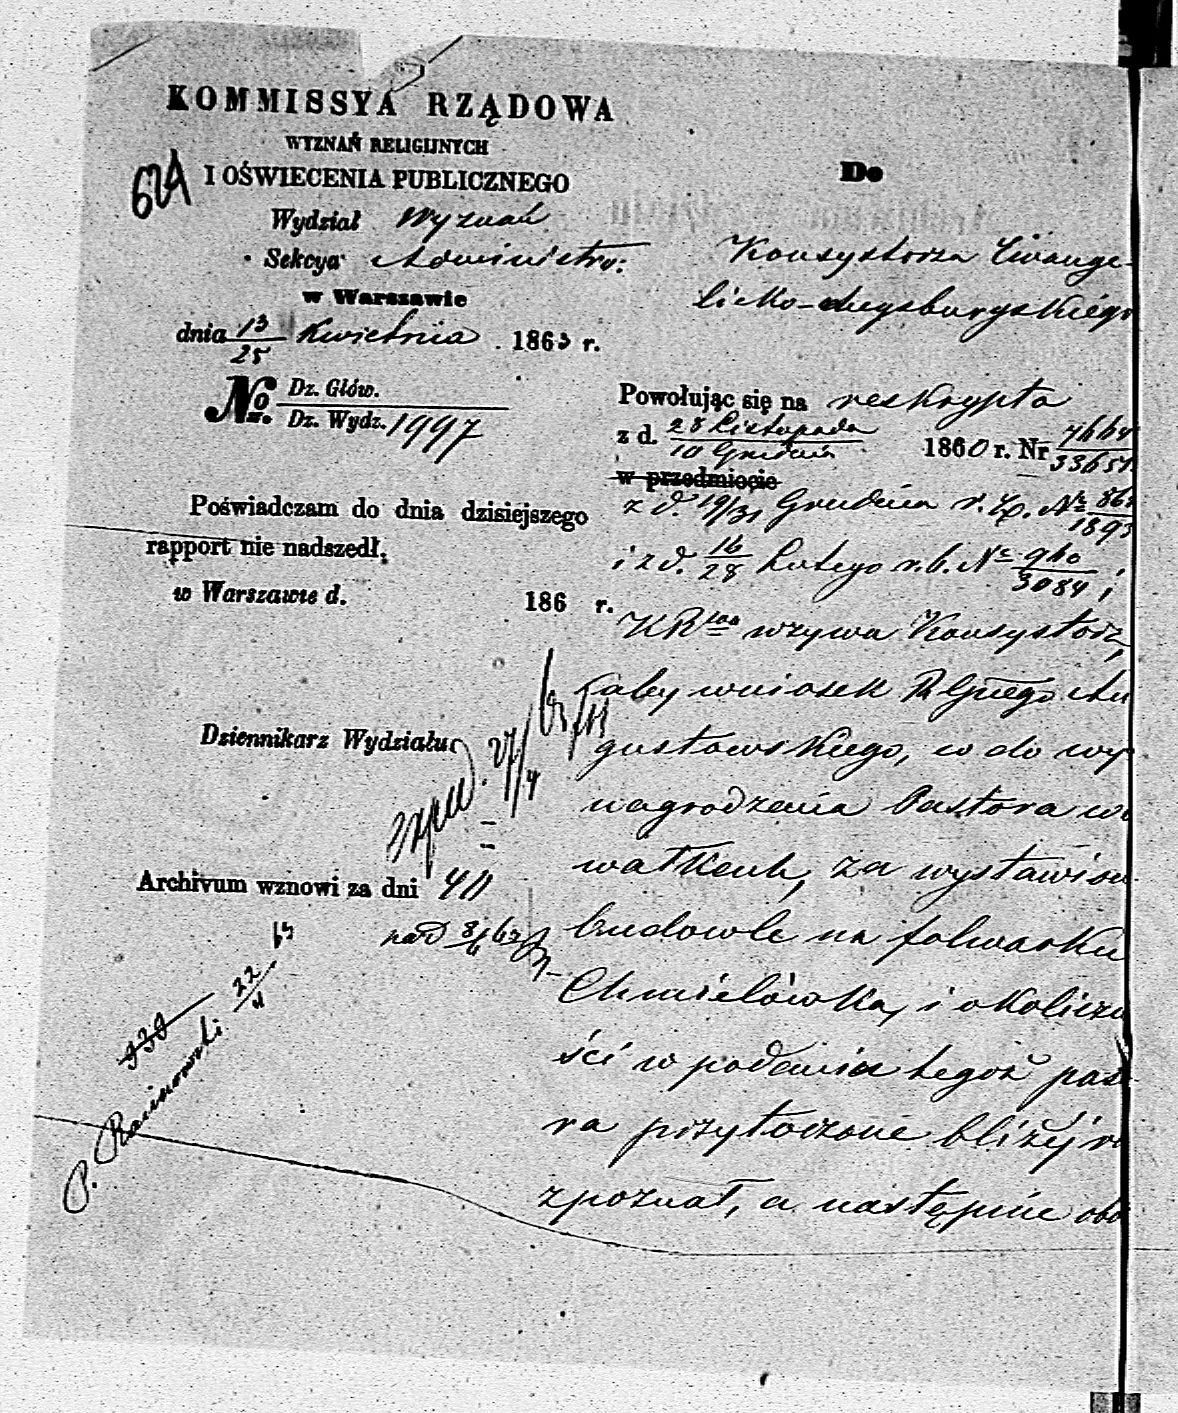 KOMMISSYA RZĄDOWA
WYZNAŃ RELIGIJNYCH
I OŚWIECENIA PUBLICZNEGO
Wydział Wyznań
Sekcya Administra:
w Warszawie
dnia 13/25 Kwietnia 1863 r.
No. Dz. Głów.
Dz. Wydz. 1997
Poświadczam do dnia dzisiejszego
rapport nie nadszedł.
w Warszawie d. 186 r.
Dziennikarz Wydziału
exped. 27/4 63
Archivum wznowi za dni 40
P. 22/4 63
Do
Konsystorza Ewange-
licko-Augsburgskiego
Powołując się na reskrypta
z d. 28 Listopada/10 Grudnia 1860 r. Nr
w przedmiocie
z d. 19/31 Grudnia r. z. Nr
i z d. 16/28 Lutego r. b. Nr 960/3084;
KR wzywa Konsystorz,
aby wniosek R Gnego Au
gustowskiego, co do wy
nagrodzenia Pastora w
za wystawion
budowle na folwarku
Chmielówka, i okoliczn
ści w podaniu tegoż pas
ra przytoczone bliżej ro
zpoznał, a następnie